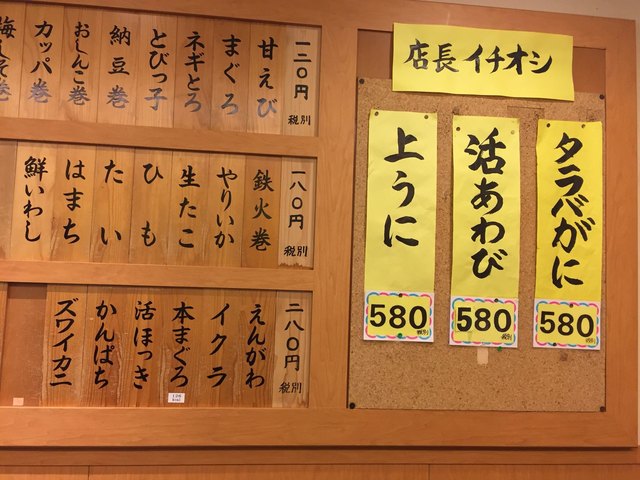 店長イチオシ
タラバがに
580
税別
活あわび
580
税別
上うに
580
税別
一二〇円
税別
甘えび
まぐろ
ネギとろ
とびっ子
納豆巻
おしんこ巻
カッパ巻
梅しそ巻
一八〇円
税別
鉄火巻
やりいか
生たこ
ひも
たい
はまち
鮮いわし
二八〇円
税別
えんがわ
イクラ
本まぐろ
活ほっき
かんぱち
ズワイカニ